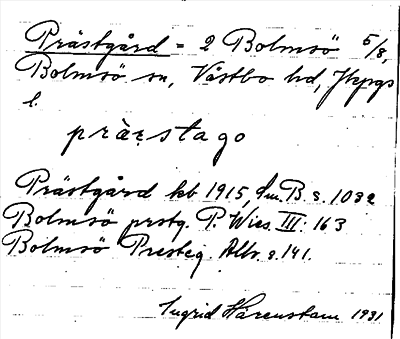 Prästgård = 2 Bolmsö 5/8,
Bolmsö sn, Västbo hd, Jkpgs
l.
prästago
Prästgård kb 1915, Sm. B. s. 1032
Bolmsö prstg. P. Wies. III: 163
Bolmsö Presteg. Allv. s. 141.
Ingrid Härenstam 1931